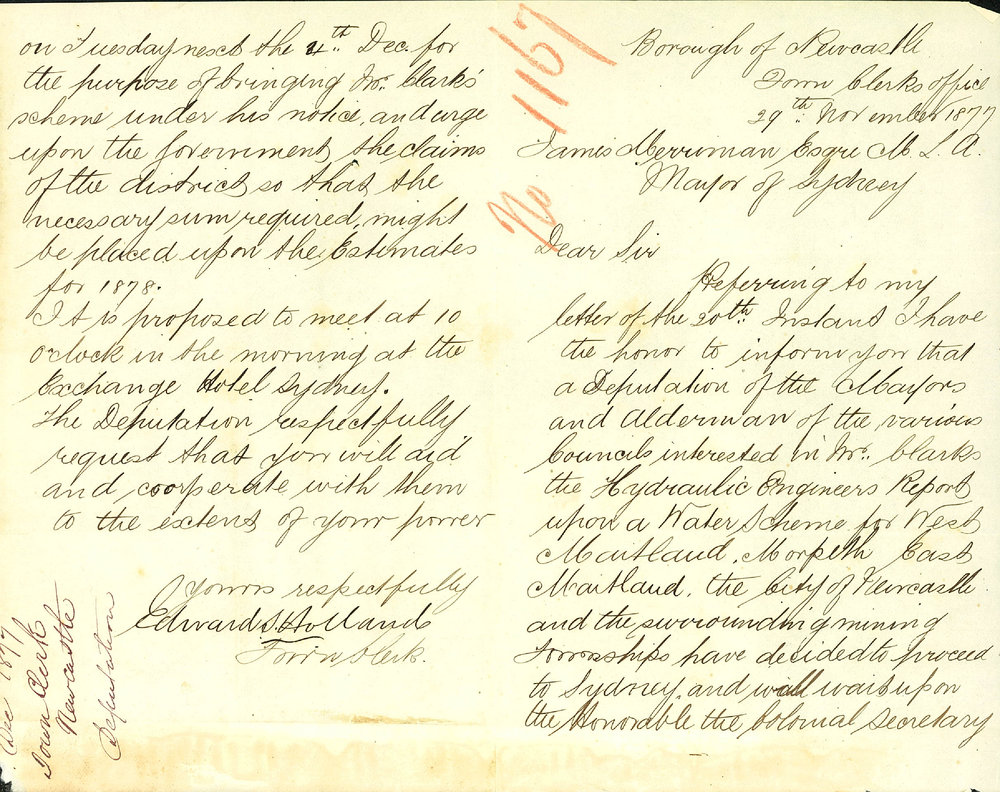 Borough of Newcastle
Town Clerks office
29th November 1877
James Merriman Esqre M. L. A.
Mayor of Sydney
Dear Sir
Referring to my
letter of the 20th Instant I have
the honor to inform you that
a Deputation of the Mayors
and Alderman of the various
Councils interested in Mr. Clarks
the Hydraulic Engineers Report
upon a Water Scheme for West
Maitland, Morpeth East
Maitland, the City of Newcastle
and the surrounding mining
Townships have decided to proceed
to Sydney, and will wait upon
the Honorable the Colonial Secretary
on Tuesday next the 4th Dec. for
the purpose of bringing Mr. Clarks'
scheme under his notice, and urge
upon the Government, the claims
of the district, so that the
necessary sum required, might
be placed upon the Estimates
for 1878.
It is proposed to meet at 10
o'clock in the morning at the
Exchange Hotel Sydney.
The Deputation respectfully
request that you will aid
and cooperate with them
to the extent of your power
Yours respectfully
Edward S. Holland
Town Clerk.
No 1167
Dec 1877
Town Clerk
Newcastle
Deputation